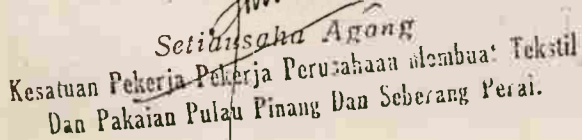 Setiausaha Agong
Kesatuan Pekerja Pekerja Perusahaan Membuat Tekstil
Dan Pakaian Pulau Pinang Dan Seberang Perai.